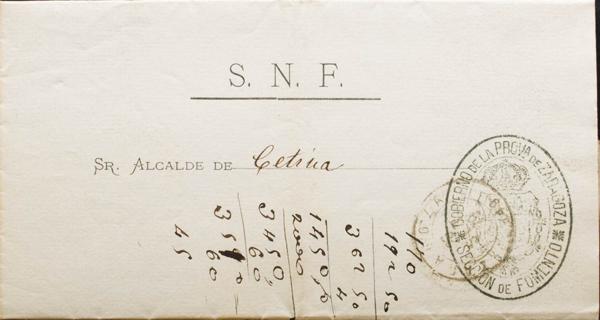 S. N. F.
SR. ALCALDE DE Cetina
GOBIERNO DE LA PROVA DE ZARAGOZA
SECCION DE FOMENTO
170
192 50
362 50
4
2000
3450
60
60
45